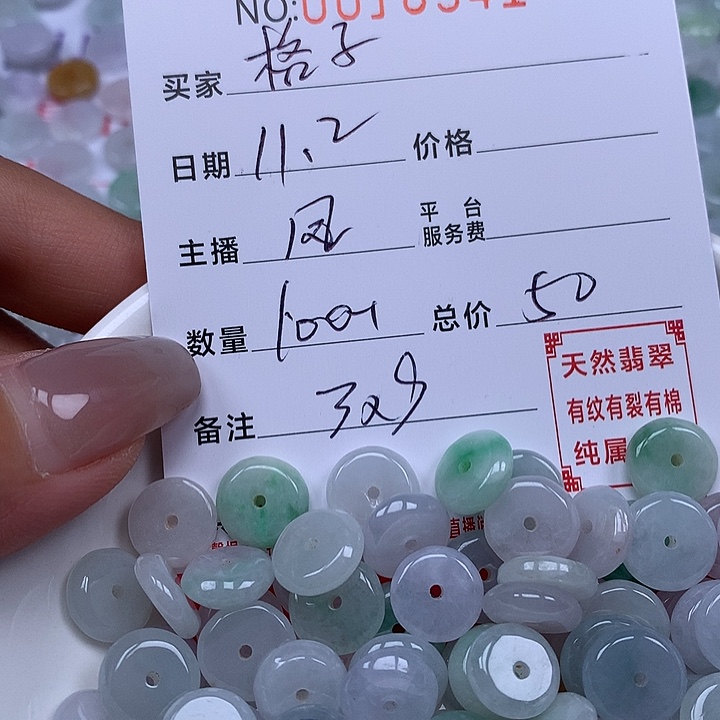 NO:0018341
买家 格子
日期 11.2 价格
主播 凤 平台服务费
数量 100个 总价 50
备注
天然翡翠
有纹有裂有棉
纯属
直播